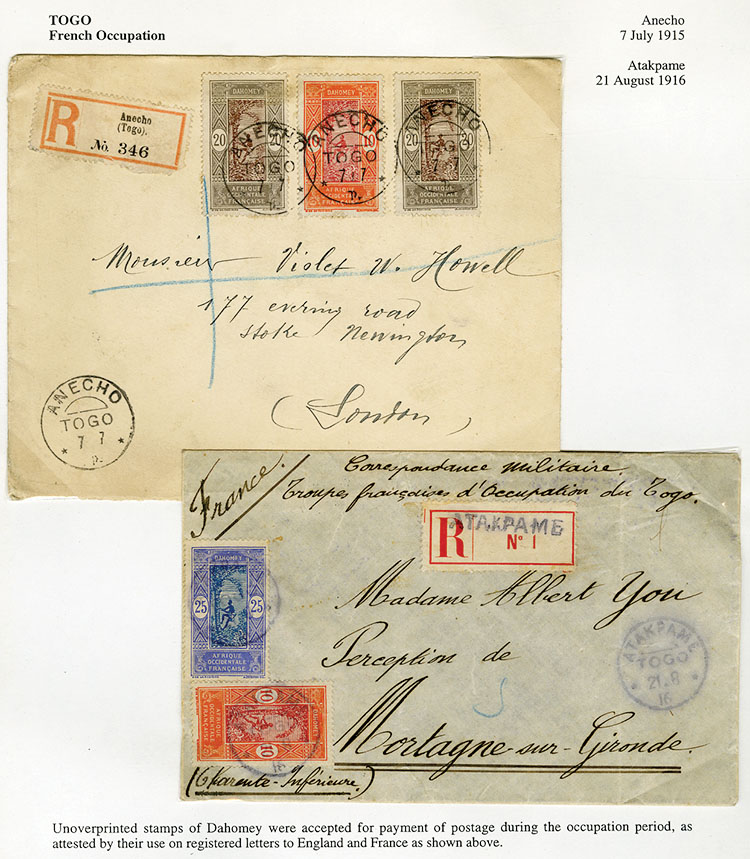 TOGO
French Occupation
Anecho
7 July 1915
Atakpame
21 August 1916
R
Anecho
(Togo).
No. 346
DAHOMEY
20 20
AFRIQUE
OCCIDENTALE
FRANÇAISE
DAHOMEY
10
AFRIQUE
OCCIDENTALE
FRANÇAISE
DAHOMEY
20 20
AFRIQUE
OCCIDENTALE
FRANÇAISE
ANECHO
TOGO
7 7
ANECHO
TOGO
7 7
ANECHO
TOGO
7 7
Monsieur Violet W. Howell
177 evering road
Stoke Newington
(London)
ANECHO
TOGO
7 7
p.
France.
Correspondance militaire.
Troupes françaises d'Occupation du Togo.
R
ATAKPAME
N° 1
DAHOMEY
25 25
AFRIQUE
OCCIDENTALE
FRANÇAISE
Madame Albert You
Perception de
ATAKPAME
TOGO
21.8
16
DAHOMEY
10 10
AFRIQUE
OCCIDENTALE
FRANÇAISE
16
Mortagne-sur-Gironde.
(Charente-Inférieure)
Unoverprinted stamps of Dahomey were accepted for payment of postage during the occupation period, as
attested by their use on registered letters to England and France as shown above.